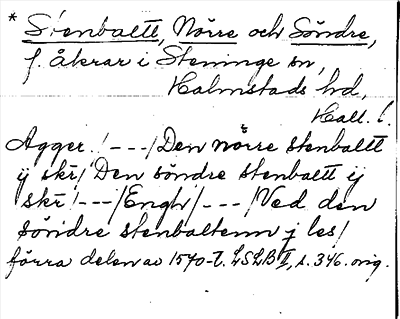 * Stenbaltt, Nörre och Söndre,
f. åkrar i Steninge sn,
Halmstads hd,
Hall. l.
Agger ! ---/ Den nörre stenbaltt
ij skr/ Den söndre stenbaltt ij
skr/ ---/ Engh/ ---/ Ved den
söndre stenbaltenn j les/
förra delen av 1570-t. LSLB II, s. 346. orig.